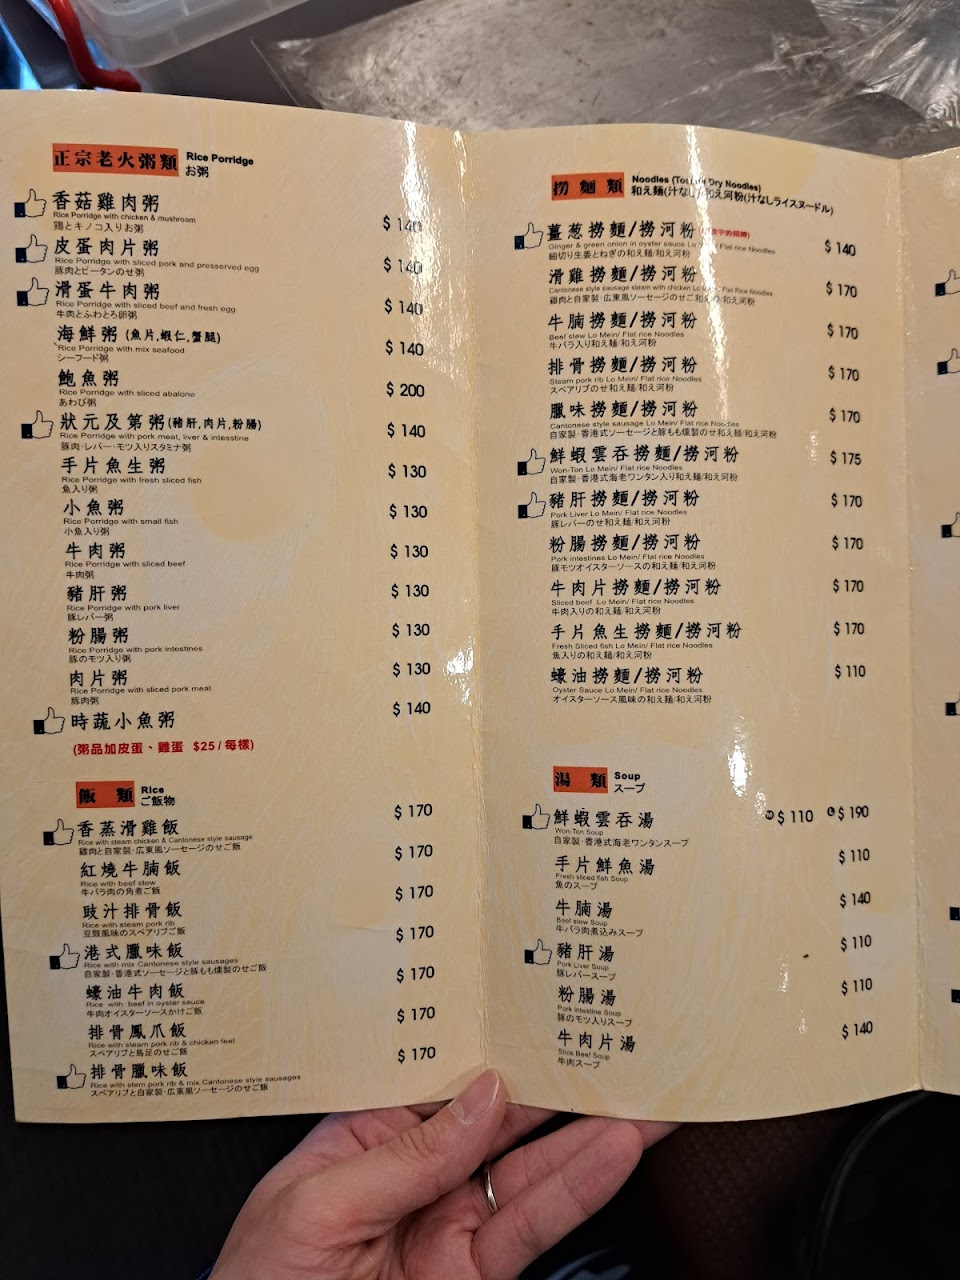 正宗老火粥類 Rice Porridge
お粥
香菇雞肉粥
Rice Porridge with chicken & mushroom
鶏とキノコ入りお粥
$ 140
皮蛋肉片粥
Rice Porridge with sliced pork and presserved egg
豚肉とピータンのせ粥
$ 140
滑蛋牛肉粥
Rice Porridge with sliced beef and fresh egg
牛肉とふわとろ卵粥
$ 140
海鮮粥 (魚片,蝦仁,蟹腿)
Rice Porridge with mix seafood
シーフード粥
$ 140
鮑魚粥
Rice Porridge with sliced abalone
あわび粥
$ 200
狀元及第粥(豬肝,肉片,粉腸)
Rice Porridge with pork meat, liver & intesstine
豚肉・レバー・モツ入りスタミナ粥
$ 140
手片魚生粥
Rice Porridge with fresh sliced fish
魚入り粥
$ 130
小魚粥
Rice Porridge with small fish
小魚入り粥
$ 130
牛肉粥
Rice Porridge with sliced beef
牛肉粥
$ 130
豬肝粥
Rice Porridge with pork liver
豚レバー粥
$ 130
粉腸粥
Rice Porridge with pork intestines
豚のモツ入り粥
$ 130
肉片粥
Rice Porridge with sliced pork meat
豚肉粥
$ 130
時蔬小魚粥
$ 140
(粥品加皮蛋、雞蛋 $25/每樣)
飯類 Rice
ご飯物
香蒸滑雞飯
Rice with steam chicken & Cantonese style sausage
雞肉と自家製・広東風ソーセージのせご飯
$ 170
紅燒牛腩飯
Rice with beef stew
牛バラ肉の角煮ご飯
$ 170
豉汁排骨飯
Rice with steam pork rib
豆鼓風味のスペアリブご飯
$ 170
港式臘味飯
Rice with mix Cantonese style sausages
自家製・香港式ソーセージと豚もも燻製のせご飯
$ 170
蠔油牛肉飯
Rice with beef in oyster sauce
牛肉オイスターソースかけご飯
$ 170
排骨鳳爪飯
Rice with steam pork rib & chicken feet
スペアリブと鳥足のせご飯
$ 170
排骨臘味飯
Rice with stem pork rib & mix Cantonese style sausages
スペアリブと自家製・広東風ソーセージのせご飯
$ 170
撈麵類 Noodles Dry Noodles)
和え麺(汁なし)和え河粉(汁なしライスヌードル)
薑葱撈麵/撈河粉
Ginger & green onion in oyster sauce Lo Flat rice Noodles
細切り生姜とねぎの和え麺/和え河粉
$ 140
滑雞撈麵/撈河粉
Cantonese style sausage steam with chicken Lo Flat Rice Noodles
雞肉と自家製・広東風ソーセージのせご和え 和え河粉
$ 170
牛腩撈麵/撈河粉
Beef stew Lo Mein/ Flat rice Noodles
牛バラ入り和え麺/和え河粉
$ 170
排骨撈麵/撈河粉
Steam pork rib Lo Mein/ Flat rice Noodles
スペアリブのせ和え麺/和え河粉
$ 170
臘味撈麵/撈河粉
Cantonese style sausage Lo Mein/ Flat rice Noodles
自家製・香港式ソーセージと豚もも燻製のせ和え麺/和え河粉
$ 170
鮮蝦雲吞撈麵/撈河粉
Won-Ton Lo Mein/ Flat rice Noodles
自家製・香港式海老ワンタン入り和え麺/和え河粉
$ 175
豬肝撈麵/撈河粉
Pork Liver Lo Mein/ Flat rice Noodles
豚レバーのせ和え麺/和え河粉
$ 170
粉腸撈麵/撈河粉
Pork intestines Lo Mein/ Flat rice Noodles
豚モツオイスターソースの和え麺/和え河粉
$ 170
牛肉片撈麵/撈河粉
Sliced beef Lo Mein/ Flat rice Noodles
牛肉入りの和え麺/和え河粉
$ 170
手片魚生撈麵/撈河粉
Fresh Sliced fish Lo Mein/ Flat rice Noodles
魚入りの和え麺/和え河粉
$ 170
蠔油撈麵/撈河粉
Oyster Sauce Lo Mein/ Flat rice Noodles
オイスターソース風味の和え麺/和え河粉
$ 110
湯類 Soup
スープ
鮮蝦雲吞湯
Won-Ton Soup
自家製・香港式海老ワンタンスープ
$ 110 $ 190
手片鮮魚湯
Fresh sliced fish Soup
魚のスープ
$ 110
牛腩湯
Beef stew Soup
牛バラ肉煮込みスープ
$ 140
豬肝湯
Pork Liver Soup
豚レバースープ
$ 110
粉腸湯
Pork intestine Soup
豚のモツ入りスープ
$ 110
牛肉片湯
Slice Beef Soup
牛肉スープ
$ 140